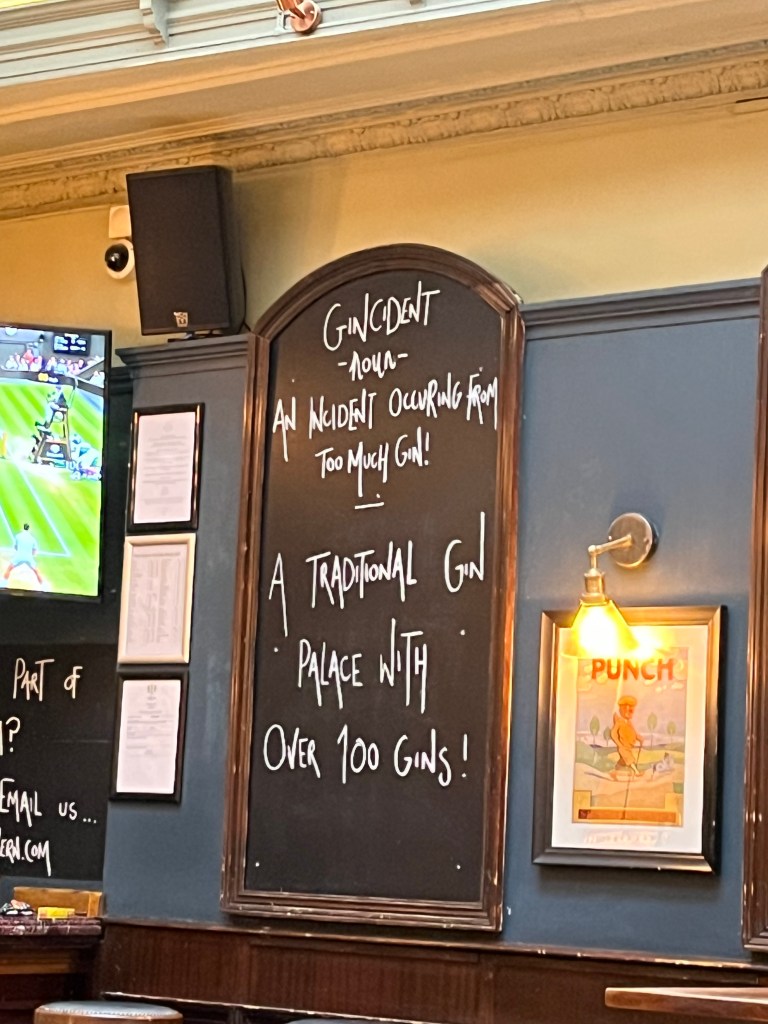 GINCIDENT
-noun-
AN INCIDENT OCCURING FROM
TOO MUCH GIN!
A TRADITIONAL GIN
PALACE WITH
OVER 100 GINS!
PART OF
?
EMAIL US...
ERN.COM
PUNCH